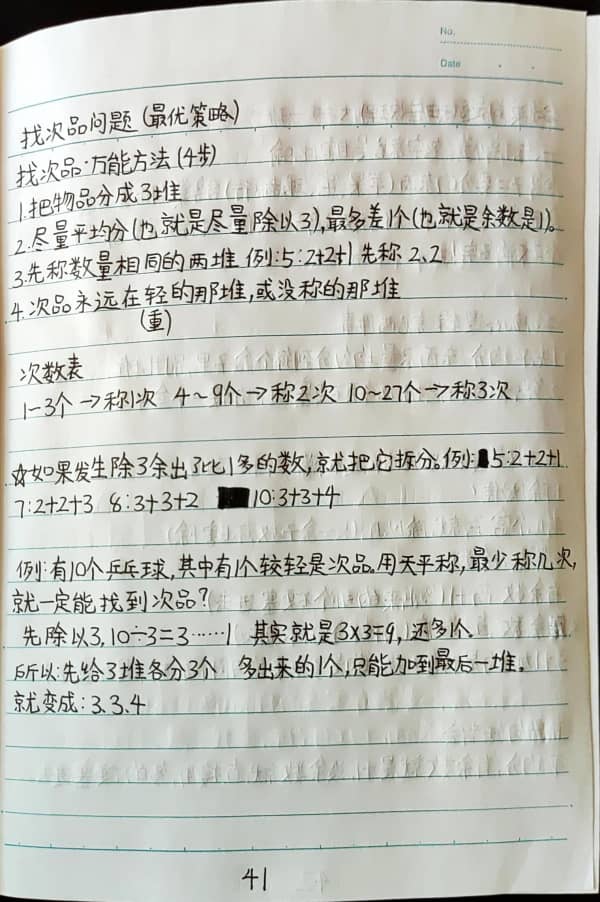 No.
Date
找次品问题(最优策略)
找次品:万能方法(4步)
1.把物品分成3堆
2.尽量平均分(也就是尽量除以3),最多差1个(也就是余数是1)。
3.先称数量相同的两堆 例:5:2+2+1 先称 2、2
4.次品永远在轻的那堆,或没称的那堆
(重)
次数表
1~3个→称1次 4~9个→称2次 10~27个→称3次
☆如果发生除3余出了比1多的数,就把它拆分。例:5:2+2+1
7:2+2+3 8:3+3+2 10:3+3+4
例:有10个乒乓球,其中有1个较轻是次品。用天平称,最少称几次,
就一定能找到次品?
先除以3,10÷3=3……1 其实就是3×3=9,1还多1个。
所以:先给3堆各分3个 多出来的1个,只能加到最后一堆。
就变成:3、3、4
41